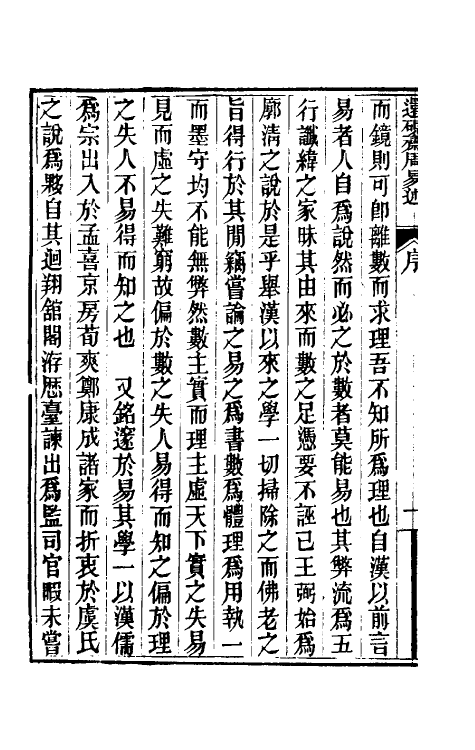 還硯齋周易述 序 一
而鏡則可卽離數而求理吾不知所爲理也自漢以前言
易者人自爲說然而必之於數者莫能易也其弊流爲五
行讖緯之家昧其由來而數之足憑要不誣已王弼始爲
廓清之說於是乎舉漢以來之學一切掃除之而佛老之
旨得行於其閒竊嘗論之易之爲書數爲體理爲用執一
而墨守均不能無弊然數主實而理主虛天下實之失易
見而虛之失難窮故偏於數之失人易得而知之偏於理
之失人不易得而知之也 又銘邃於易其學一以漢儒
爲宗出入於孟喜京房荀爽鄭康成諸家而折衷於虞氏
之說爲夥自其迴翔舘閣洊歷臺諫出爲監司官暇未嘗